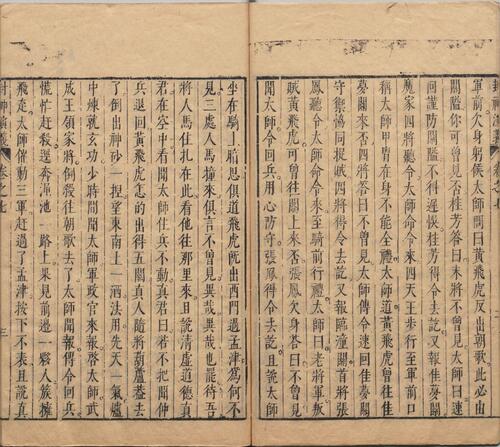 軍前欠身躬候太師問曰黃飛虎反出朝歌此必由
關隘你可曾見否桂芳答曰末將不曾見太師曰速
回謹防關隘不得遲悞桂芳得令去訖又報佳夢關
魔家四將聽令太師命令來四天王步行至軍前口
稱太師甲胄在身不能全禮太師道黃飛虎曾往佳
夢關來否四將答曰不曾見太師傳令速回佳夢關
守衛協同捉賊四將得令去訖又報臨潼關首將張
鳳聽令太師命令來至騎前行禮太師曰老將軍叛
賊黃飛虎可曾往關上來否張鳳欠身答曰不曾見
聞太師令回兵用心防守張鳳得令去訖且說太師
坐在騎上暗思俱道飛虎既出西門過孟津爲何不
見三處人馬撞來俱言不曾見異哉異哉也罷待吾
將人馬住扎在此看他往那里來且說清虛道德真
君在空中看聞太師住兵不動真君曰若不把聞仲
兵退回黃飛虎怎的出得五關真人隨將葫蘆蓋去
了倒出神砂一捏望東南上一洒法用先天一氣爐
中練就玄功少時間聞太師軍政官來報啓太師武
成王領家將倒殺往朝歌去了太師聞報傳令回兵
慌忙赶殺逕奔澠池一路上果見前邊一夥人族擁
飛走太師催動三軍赶過了孟津按下不表且說真
封神演義 卷之七 三